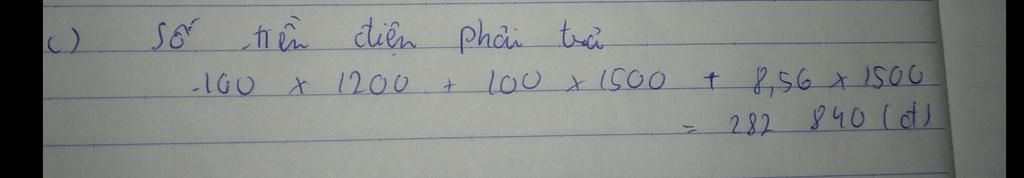 c) Số tiền điện phải trả
100 x 1200 + 100 x 1500 + 8,56 x 1500
= 282 840 (đ)